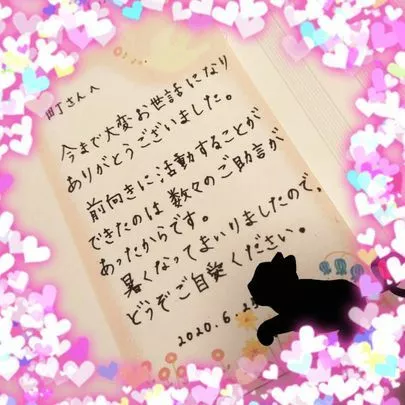 町さんへ
今まで大変お世話になり
ありがとうございました。
前向きに活動することが
できたのは数々のご助言が
あったからです。
暑くなってまいりましたので、
どうぞご自愛ください。
2020.6.2